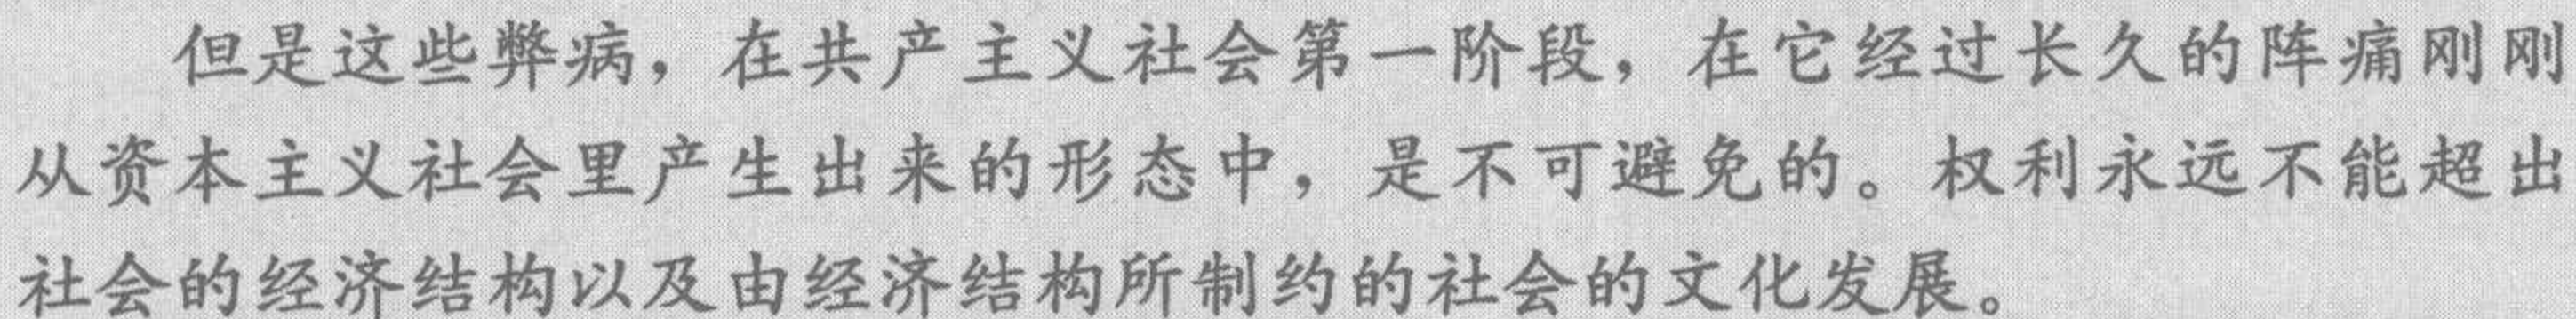 但是这些弊病，在共产主义社会第一阶段，在它经过长久的阵痛刚刚
从资本主义社会里产生出来的形态中，是不可避免的。权利永远不能超出
社会的经济结构以及由经济结构所制约的社会的文化发展。